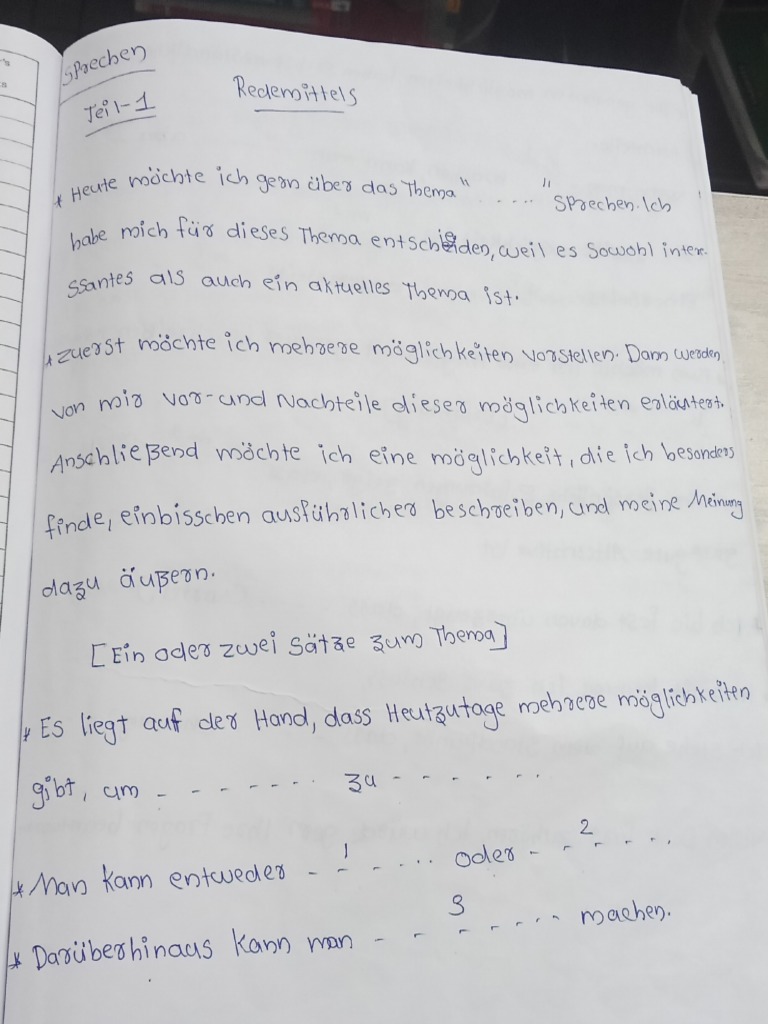 Sprechen
Teil-1
Redemittels
* Heute möchte ich gern über das Thema " ..... " sprechen. Ich
habe mich für dieses Thema entschieden, weil es sowohl inter-
ssantes als auch ein aktuelles Thema ist.
* Zuerst möchte ich mehrere möglichkeiten vorstellen. Dann werden
von mir vor-und Nachteile dieser möglichkeiten erläutert.
Anschließend möchte ich eine möglichkeit, die ich besonders
finde, einbisschen ausführlicher beschreiben, und meine Meinung
dazu äußern.
[Ein oder zwei Sätze zum Thema]
* Es liegt auf der Hand, dass Heutzutage mehrere möglichkeiten
gibt, um - - - - - - - zu - - - - - -
* Man kann entweder - 1 - - ... oder - - 2 - - - .
* Darüberhinaus kann man - - 3 - - - - machen.